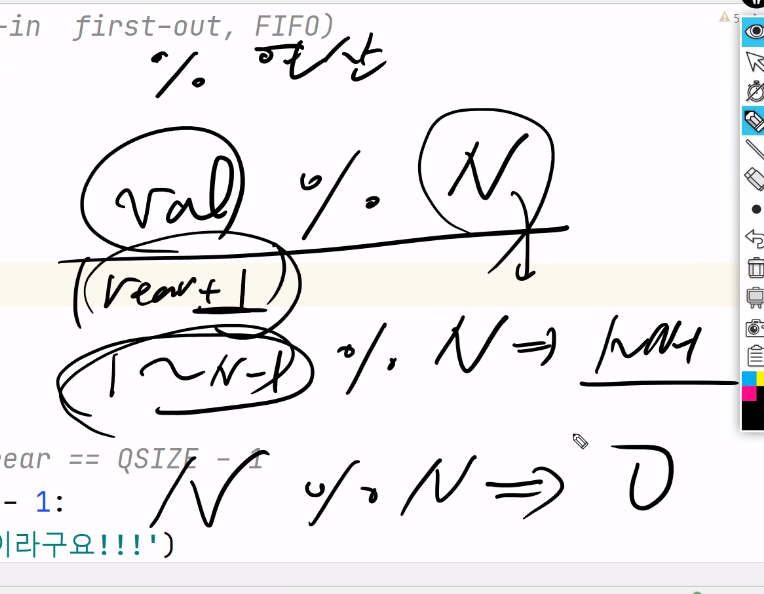 -in first-out, FIFO)
% 연산
val % N
(rear+1)
1 ~ N-1 % N ⇒ 1~N-1
ear == QSIZE - 1
N % N ⇒ 0
- 1:
이라구요!!!')
5